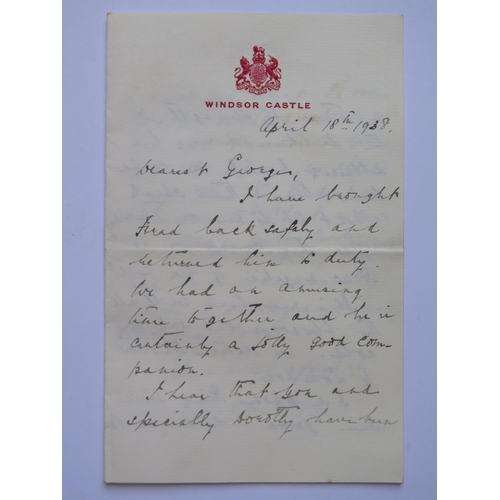 WINDSOR CASTLE
April 18th 1938.
Dearest Georges,
I have brought
back safely and
returned him to duty.
We had an amusing
time together and he is
certainly a jolly good com-
panion.
I hear that you and
specially Dorothy have been